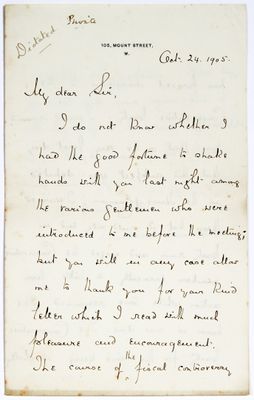 Dictated
Private
105, MOUNT STREET,
W.
Oct. 24. 1905.
My dear Sir,
I do not know whether I
had the good fortune to shake
hands with you last night among
the various gentlemen who were
introduced to me before the meeting;
but you will in any case allow
me to thank you for your kind
letter which I read with much
pleasure and encouragement.
The course of the fiscal controversy